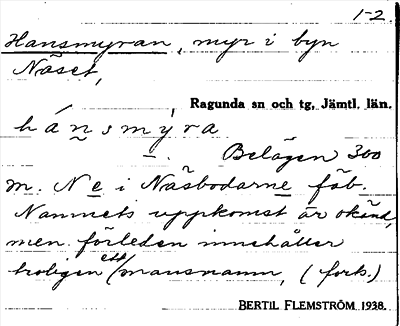 1-2.
Hansmyran, myr i byn
Näset,
Ragunda sn och tg, Jämtl. län.
hánsmýra
Belägen 300
m. N e i Näsbodarne fäb.
Namnets uppkomst är okänd,
men förleden innehåller
troligen ett mansnamn, (fork.)
BERTIL FLEMSTRÖM 1938.